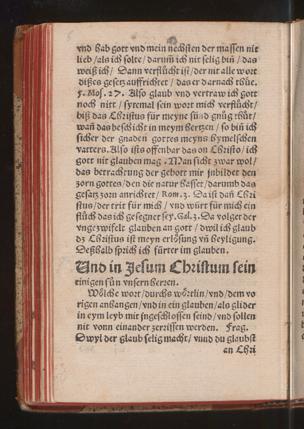 vnd hab gott vnd mein nechsten der massen nit
lieb / als ich solte / darum̃ ich nit selig bin / das
weiß ich / Dann verflůcht ist / der nit alle wort
dises gesetz auffrichtet / das er darnach thůe.
5. Mos. 27. Also glaub vnd vertraw ich gott
noch nitt / syremal sein wort mich verflůcht /
biß das Christus für meyne sünd gnůg thůt /
wañ das beschicht in meym hertzen / so bin ich
sicher der gnaden gottes meyns hymelschen
vatters. Also ists offenbar das on Christo / ich
gott nit glauben mag. Man sicht zwar wol /
das betrachtung der gebott mir jnbildet den
zorn gottes / den die natur hasset / darumb das
gesatz zorn anrichtet / Rom. 3. Da ist dañ Chri
stus / der trit für mich / vnd würt für mich ein
flůch das ich gesegnet sey. Gal. 3. Da volget der
vngezwifelt glauben an gott / dwil ich glaub
dz Christus ist meyn erlösung vñ seyligung.
Deßhalb sprich ich fürter im glauben.
Und in Jesum Christum sein
einigen sůn vnsern herren.
Wölche wort / durchs wörtlin / vnd / dem vo
rigen anhangen / vnd in ein glauben / als glider
in eym leyb mit jngeschlossen seind / vnd sollen
nit vonn einander zerrissen werden. Frag.
Dwyl der glaub selig macht / vnnd du glaubst
an Chri